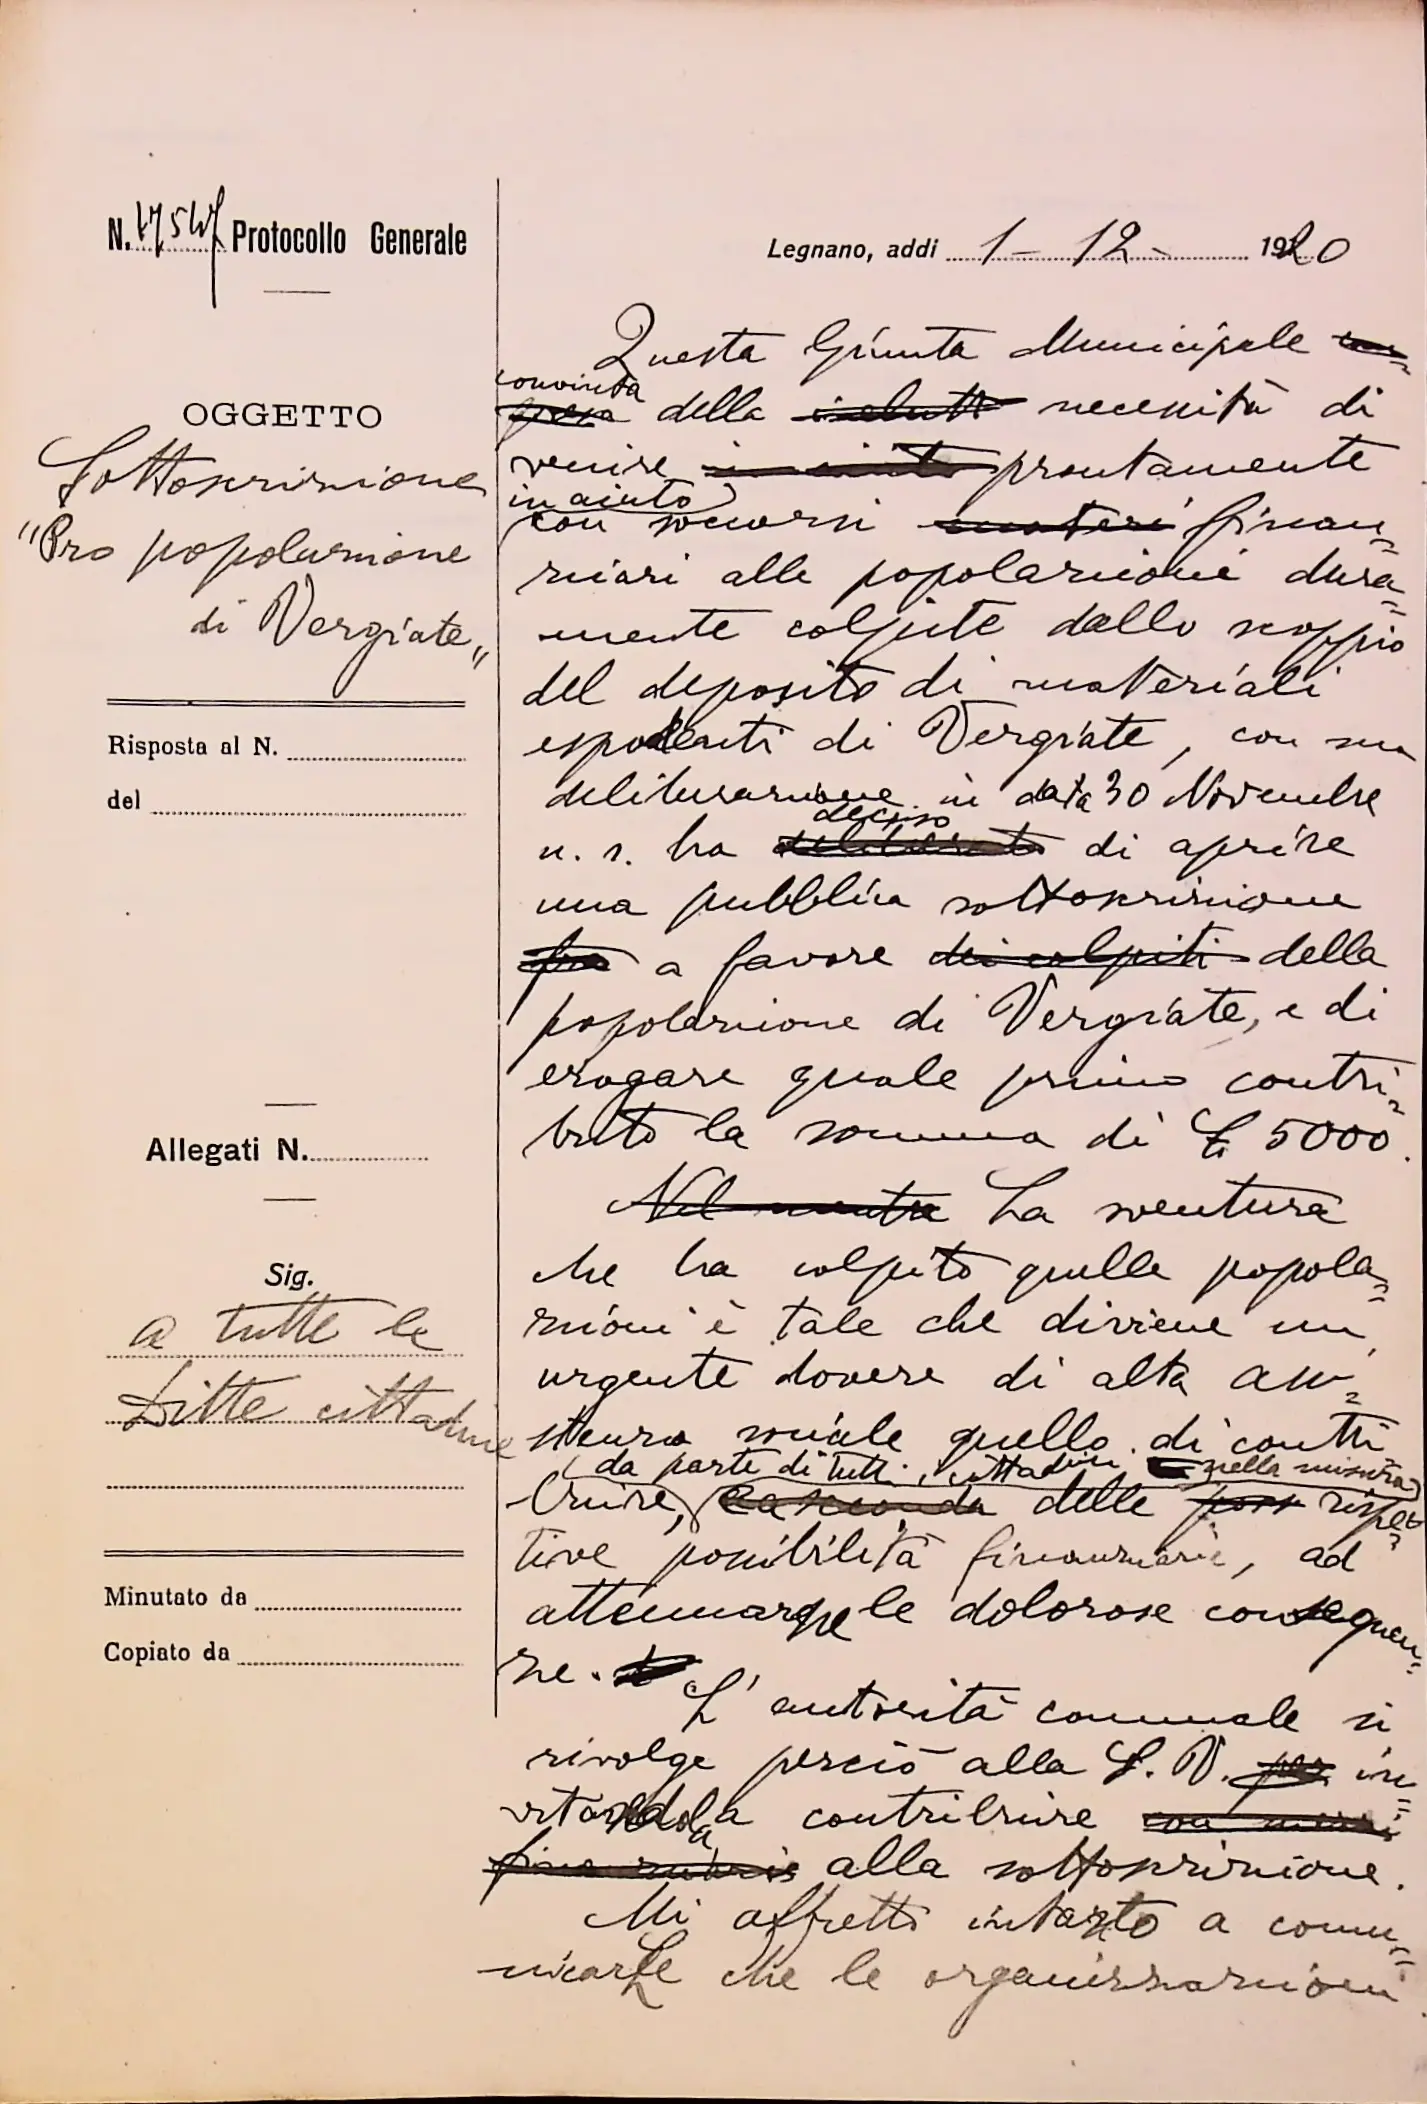 N. 17547 Protocollo Generale
OGGETTO
Sottoscrizione
"Pro popolazione
di Vergiate"
Risposta al N.
del
Allegati N.
Sig.
a tutte le
Ditte cittadine
Minutato da
Copiato da
Legnano, addi 1 - 12 - 1920
Questa Giunta Municipale
convinta
della necessità di
venire prontamente
in aiuto
con soccorsi finan=
ziari alle popolazioni dura=
mente colpite dallo scoppio
del deposito di materiali
esplodenti di Vergiate, con sua
deliberazione in data 30 Novembre
deciso
u. s. ha deliberato di aprire
una pubblica sottoscrizione
fra a favore dei colpiti della
popolazione di Vergiate, e di
erogare quale primo contri=
buto la somma di £ 5000.
Nel mentre La sventura
che ha colpito quelle popola=
zioni è tale che diviene un
urgente dovere di alta assi=
stenza sociale quello di contri
da parte di tutti i cittadini nella misura
buire, a seconda delle poss rispet=
tive possibilità finanziarie, ad
attenuarne le dolorose conseguen=
ze.
L'autorità comunale si
rivolge perciò alla S. V. per in=
vitandola a contribuire
alla sottoscrizione.
Mi affretto intanto a comu=
nicarLe che le organizzazioni